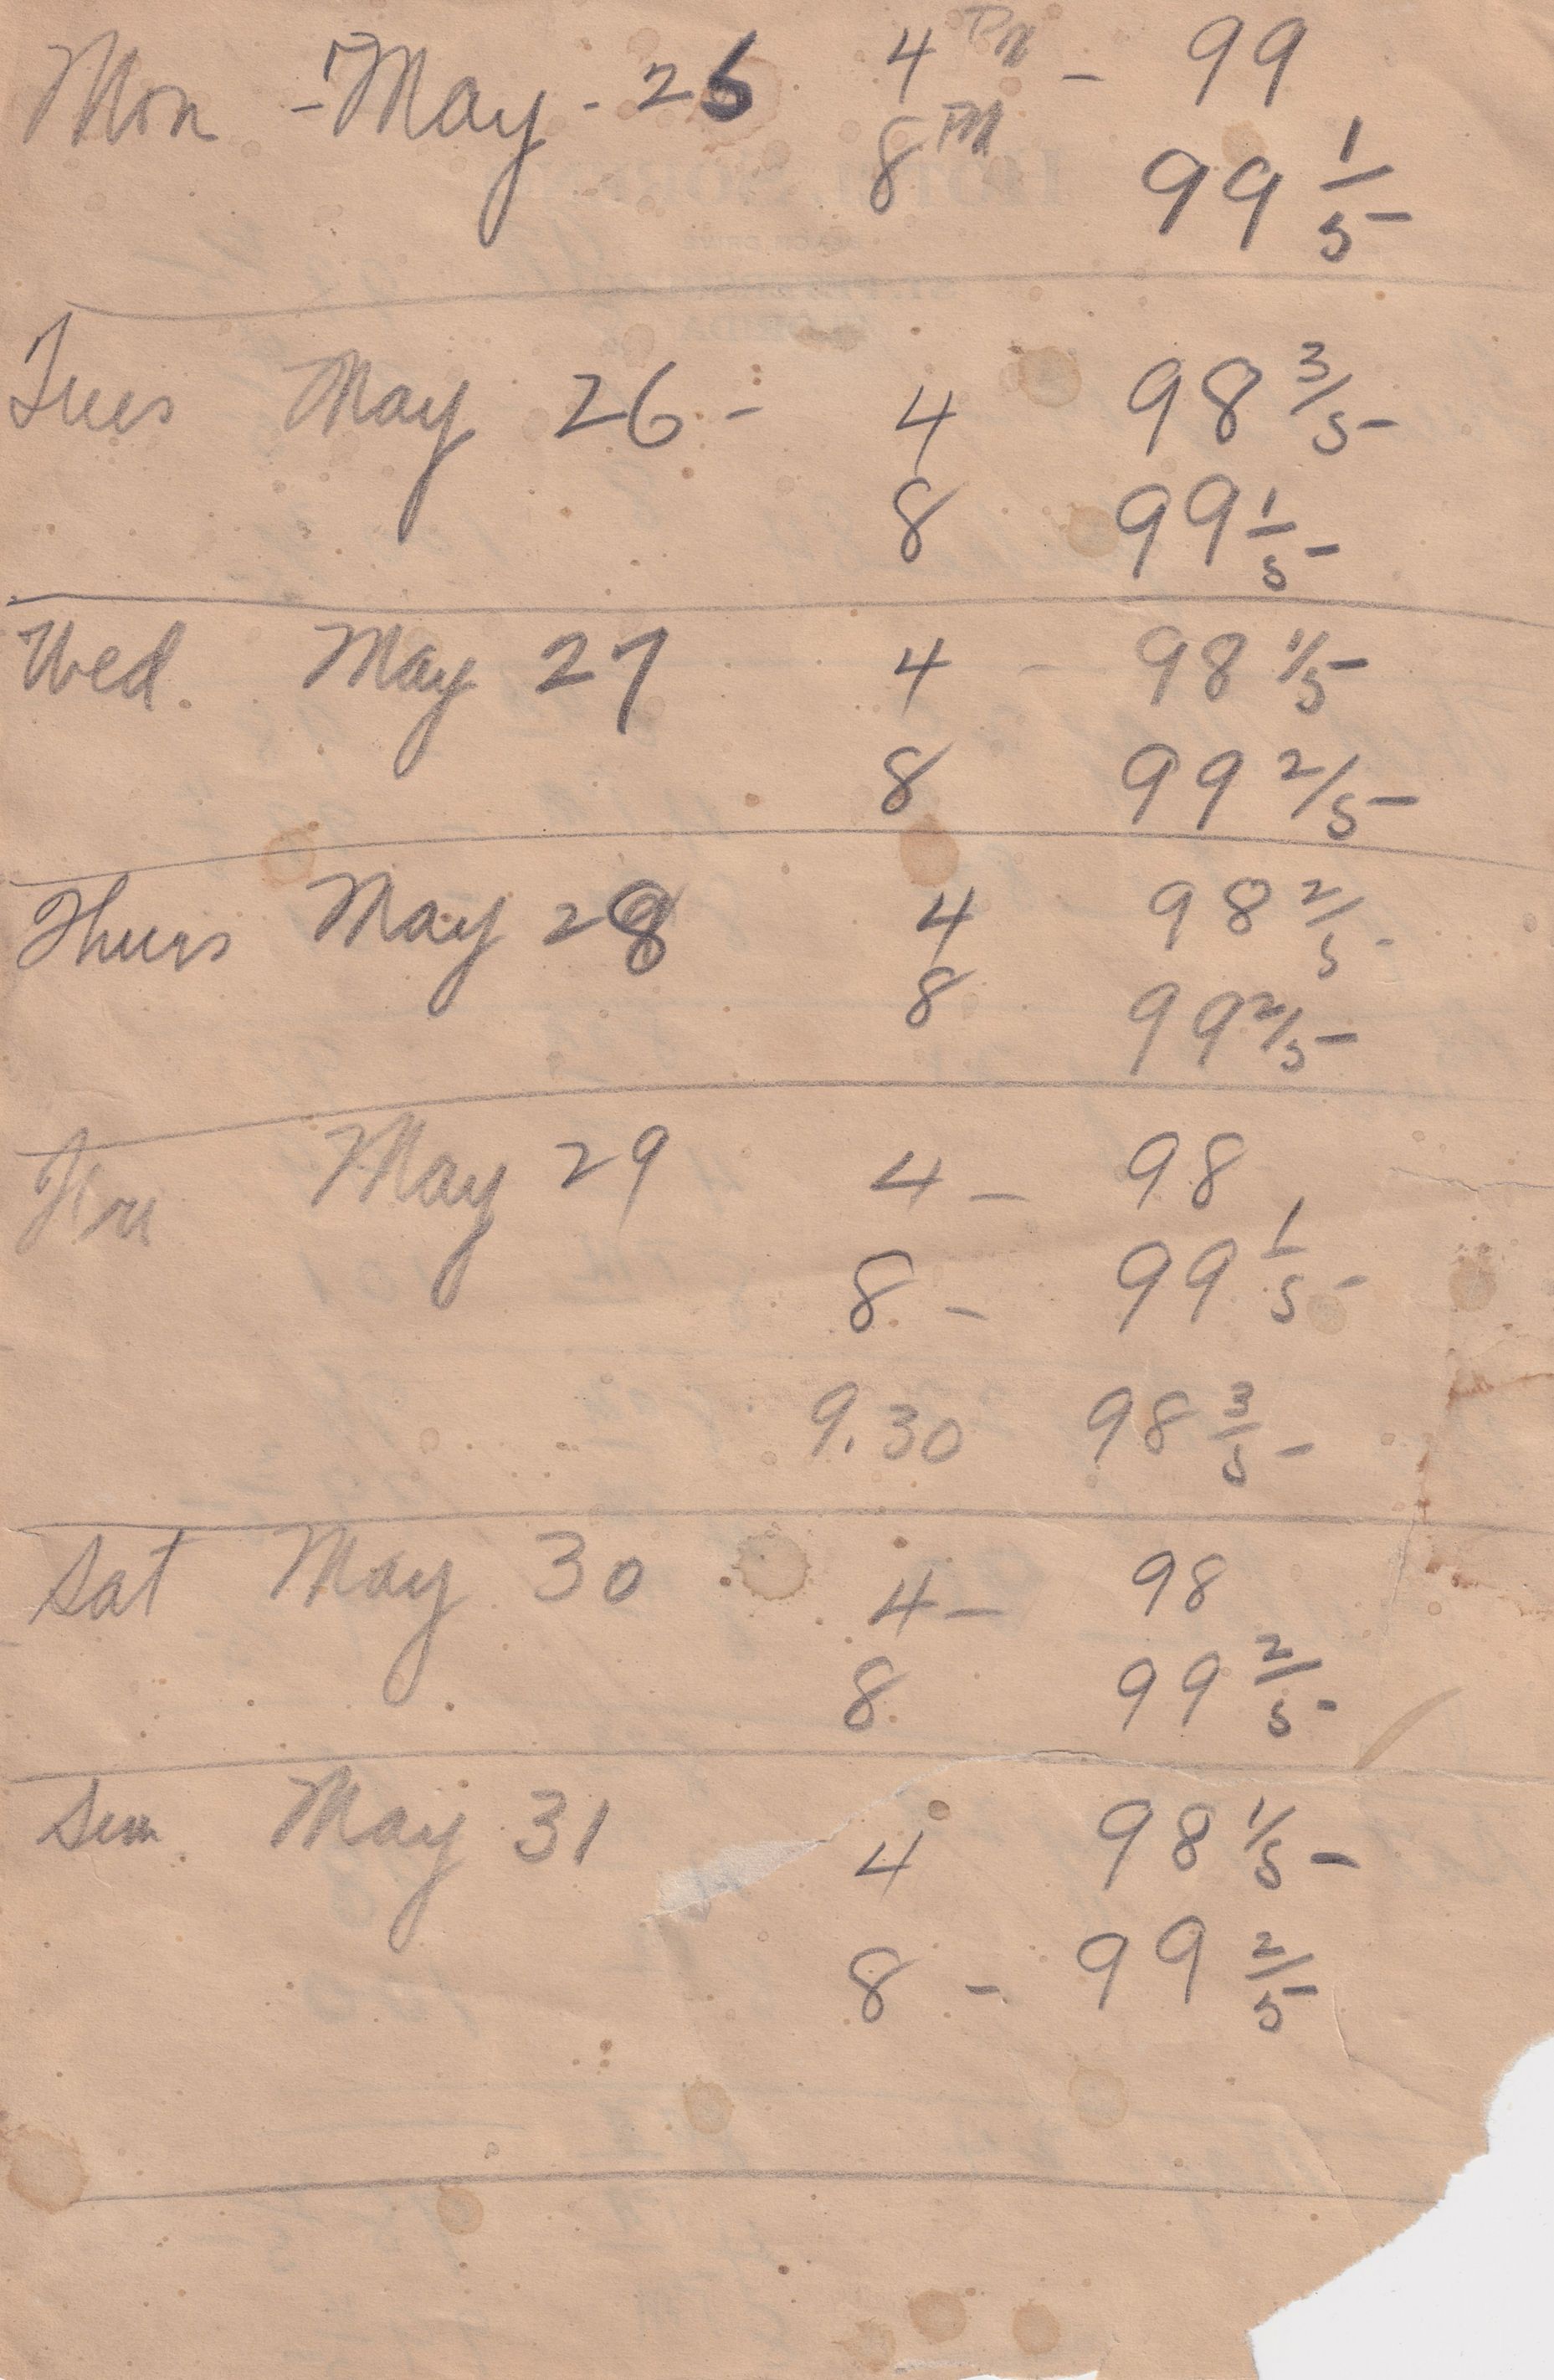 Mon - May - 25 4 PM - 99
8 PM 99 1/5
Tues May 26 - 4 98 3/5
8 99 1/5
Wed. May 27 4 - 98 1/5
8 99 2/5
Thurs May 28 4 98 2/5
8 99 2/5
Fri May 29 4 - 98
8 - 99 1/5
9.30 98 3/5
Sat May 30 4 - 98
8 99 2/5
Sun May 31 4 98 1/5
8 - 99 2/5